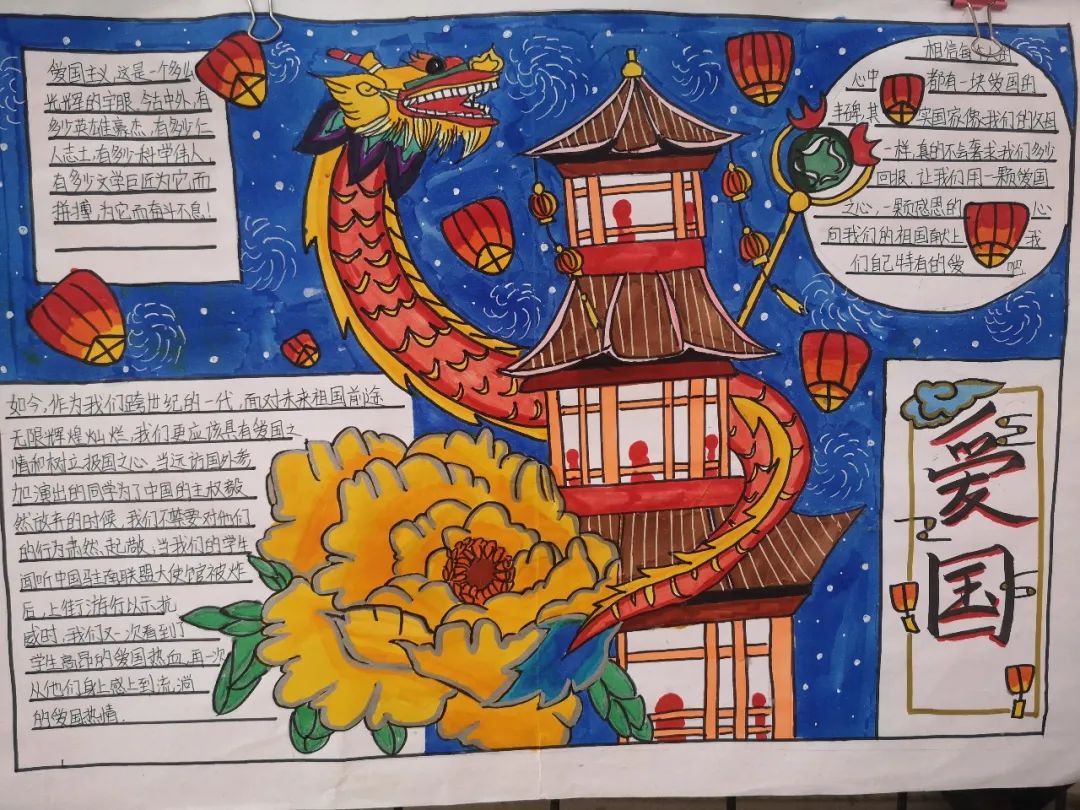 爱国主义,这是一个多么
光辉的字眼,今古中外,有
多少英雄豪杰,有多少仁
人志士,有多少科学伟人,
有多少文学巨匠为它而
拼搏,为它而奋斗不息!
相信每个人的
心中都有一块爱国的
丰碑,其实国家像我们的父母
一样,真的不会奢求我们多少
回报,让我们用一颗爱国
之心,一颗感恩的心
向我们的祖国献上我
们自己特有的爱吧
如今,作为我们跨世纪的一代,面对未来祖国前途
无限辉煌灿烂,我们更应该具有爱国之
情和树立报国之心,当远访国外参
加演出的同学为了中国的主权毅
然放弃的时候,我们不禁要对他们
的行为肃然起敬,当我们的学生
闻听中国驻南联盟大使馆被炸
后,上街游行以示抗
威时,我们又一次看到了
学生高昂的爱国热血,再一次
从他们身上感上到流淌
的爱国热情.
爱
国